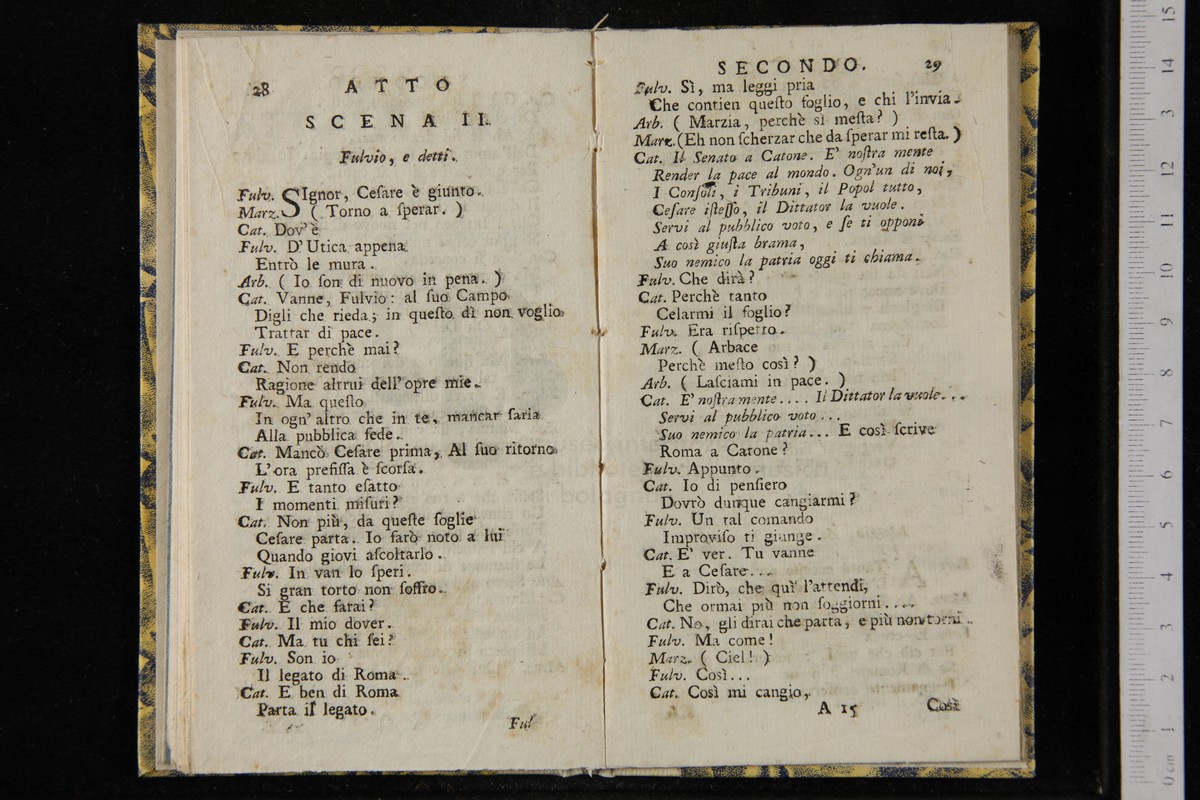 28 ATTO
SCENA II.
Fulvio, e detti.
Fulv. SIgnor, Ceſare è giunto.
Marz. ( Torno a ſperar. )
Cat. Dov' è
Fulv. D' Utica appena
Entrò le mura.
Arb. ( Io ſon di nuovo in pena. )
Cat. Vanne, Fulvio: al ſuo Campo
Digli che rieda; in queſto dì non voglio
Trattar di pace.
Fulv. E perchè mai?
Cat. Non rendo
Ragione altrui dell' opre mie.
Fulv. Ma queſto
In ogn' altro che in te, mancar ſaria
Alla pubblica fede.
Cat. Mancò Ceſare prima, Al ſuo ritorno
L' ora prefiſſa è ſcorſa.
Fulv. E tanto eſatto
I momenti miſuri?
Cat. Non più, da queſte ſoglie
Ceſare parta. Io farò noto a lui
Quando giovi aſcoltarlo.
Fulv. In van lo ſperi.
Si gran torto non ſoffro.
Cat. E che farai?
Fulv. Il mio dover.
Cat. Ma tu chi ſei?
Fulv. Son io
Il legato di Roma.
Cat. E ben di Roma
Parta il legato.
Ful
SECONDO. 29
Fulv. Sì, ma leggi pria
Che contien queſto foglio, e chi l'invia.
Arb. ( Marzia, perchè sì meſta? )
Marz. (Eh non ſcherzar che da ſperar mi reſta. )
Cat. Il Senato a Catone. E' noſtra mente
Render la pace al mondo. Ogn'un di noi,
I Conſoli, i Tribuni, il Popol tutto,
Ceſare iſteſſo, il Dittator la vuole.
Servi al pubblico voto, e ſe ti opponi
A così giuſta brama,
Suo nemico la patria oggi ti chiama.
Fulv. Che dirà?
Cat. Perchè tanto
Celarmi il foglio?
Fulv. Era riſpetto.
Marz. ( Arbace
Perchè meſto così? )
Arb. ( Laſciami in pace. )
Cat. E' noſtra mente.... Il Dittator la vuole...
Servi al pubblico voto...
Suo nemico la patria... E così ſcrive
Roma a Catone?
Fulv. Appunto.
Cat. Io di penſiero
Dovrò dunque cangiarmi?
Fulv. Un tal comando
Improviſo ti giunge.
Cat. E' ver. Tu vanne
E a Ceſare...
Fulv. Dirò, che quì l'attendi,
Che ormai più non ſoggiorni....
Cat. No, gli dirai che parta, e più non torni.
Fulv. Ma come!
Marz. ( Ciel! )
Fulv. Così...
Cat. Così mi cangio,
A 15 Così